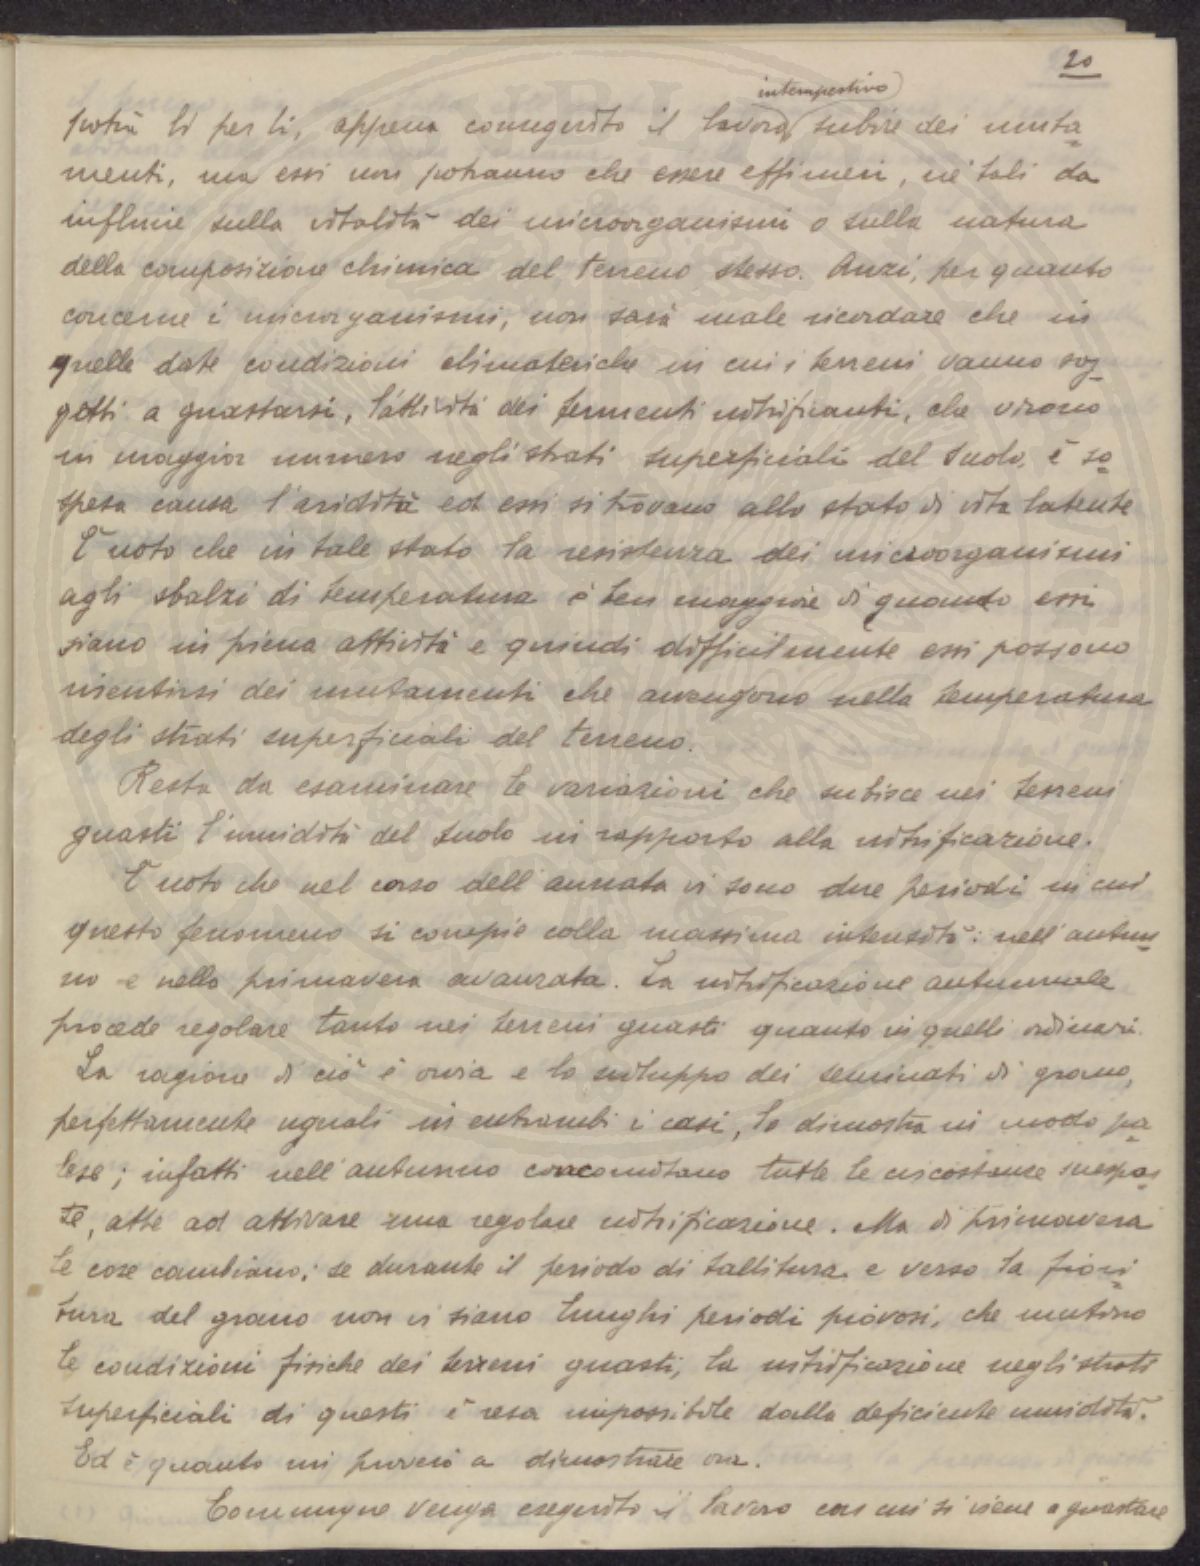 20
intempestivo
potrà lì per lì, appena conseguito il lavoro subire dei muta-
menti, ma essi non potranno che essere effimeri, nè tali da
influire sulla vitalità dei microorganismi o sulla natura
della composizione chimica del terreno stesso. Anzi, per quanto
concerne i microrganismi, non sarà male ricordare che in
quelle date condizioni climateriche in cui i terreni vanno sog-
getti a guastarsi, l'attività dei fermenti nitrificanti, che vivono
in maggior numero negli strati superficiali del suolo, è so-
spesa causa l'aridità ed essi si trovano allo stato di vita latente
È noto che in tale stato la resistenza dei microorganismi
agli sbalzi di temperatura è ben maggiore di quando essi
siano in piena attività e quindi difficilmente essi possono
risentirsi dei mutamenti che avvengono nella temperatura
degli strati superficiali del terreno.
Resta da esaminare le variazioni che subisce nei terreni
guasti l'umidità del suolo in rapporto alla nitrificazione.
È noto che nel corso dell'annata vi sono due periodi in cui
questo fenomeno si compie colla massima intensità: nell'autun-
no e nella primavera avanzata. La nitrificazione autunnale
procede regolare tanto nei terreni guasti quanto in quelli ordinari.
La ragione di ciò è ovvia e lo sviluppo dei seminati di grano,
perfettamente uguali in entrambi i casi, lo dimostra in modo pa-
lese; infatti nell'autunno concomitano tutte le circostanze suespos-
te, atte ad attivare una regolare nitrificazione. Ma di primavera
le cose cambiano; se durante il periodo di tallitura e verso la fiori-
tura del grano non vi siano lunghi periodi piovosi, che mutino
le condizioni fisiche dei terreni guasti, la nitrificazione negli strati
superficiali di questi è resa impossibile dalla deficiente umidità.
Ed è quanto mi proverò a dimostrare ora.
Comunque venga eseguito il lavoro con cui si viene a guastare